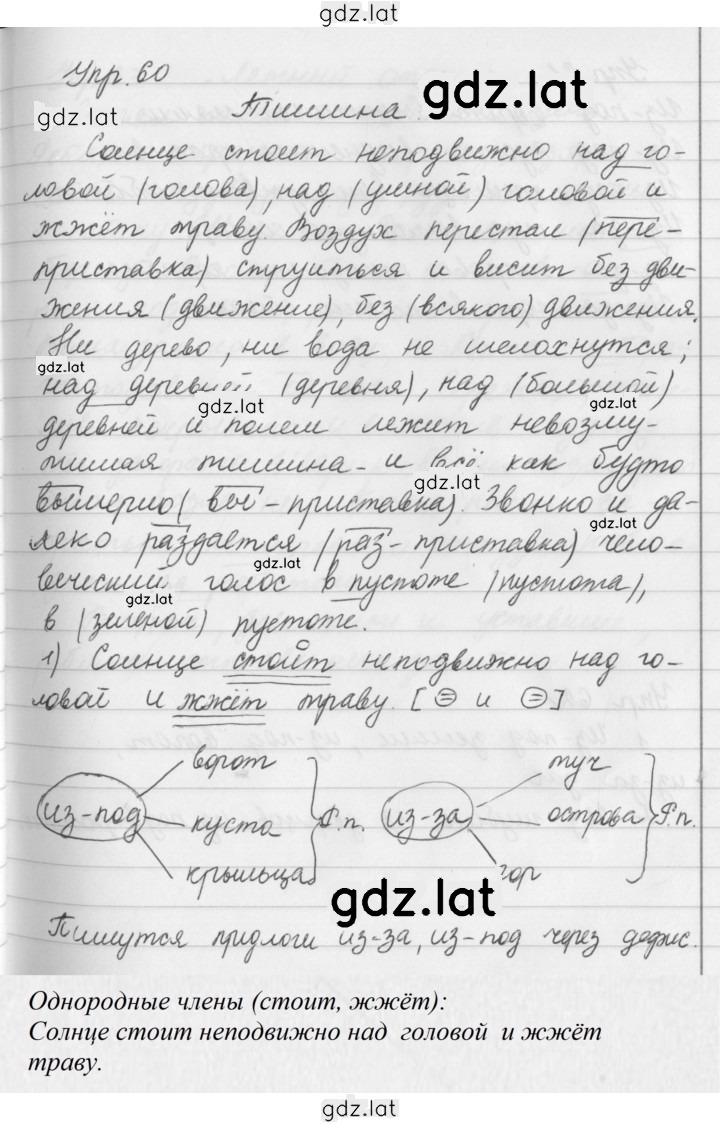 gdz.lat
Упр. 60
gdz.lat
gdz.lat
Тишина.
Солнце стоит неподвижно над го-
ловой (голова), над (умной) головой и
жжёт траву. Воздух перестал (пере-
приставка) струиться и висит без дви-
жения (движение), без (всякого) движения.
Ни дерево, ни вода не шелохнутся;
gdz.lat
над деревней (деревня), над (большой)
gdz.lat
gdz.lat
деревней и полем лежит невозму-
тимая тишина - и всё как будто
gdz.lat
вымерло (вы - приставка). Звонко и да-
gdz.lat
леко раздаётся (раз - приставка) чело-
веческий голос в пустоте (пустота),
gdz.lat
в (зеленой) пустоте.
1) Солнце стоит неподвижно над го-
ловой и жжёт траву. [= и =]
из-под
ворот
куста
крыльца
Р.п.
из-за
туч
острова
гор
Р.п.
gdz.lat
Пишутся предлоги из-за, из-под через дефис.
Однородные члены (стоит, жжёт):
Солнце стоит неподвижно над головой и жжёт
траву.
gdz.lat